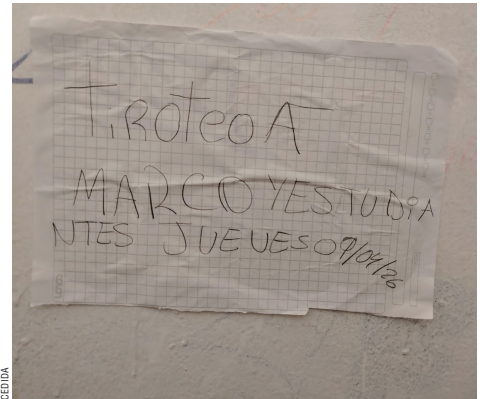 TiROTeo A
MARCO YESTUDiA
NTES JUEUES 09/04/26
CEDIDA